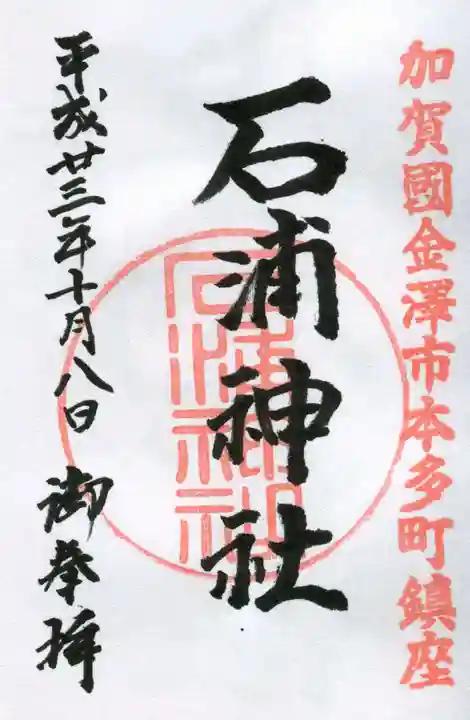 加賀國金澤市本多町鎮座
石浦神社
平成廿三年十月八日 御奉拝